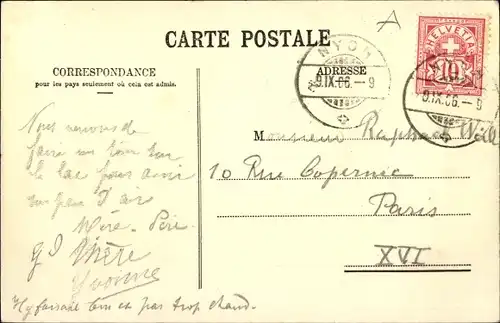 CARTE POSTALE
CORRESPONDANCE
pour les pays seulement où cela est admis.
ADRESSE
NYON
9.IX.06.-9
HELVETIA
10
9.IX.06.-9
Nous venons de
faire un tour sur
le lac pour avoir
un peu d'air
Mère - Père
Yvonne
Il y faisait bon et pas trop chaud.
Monsieur Raphael
10 Rue Copernic
Paris
XVI